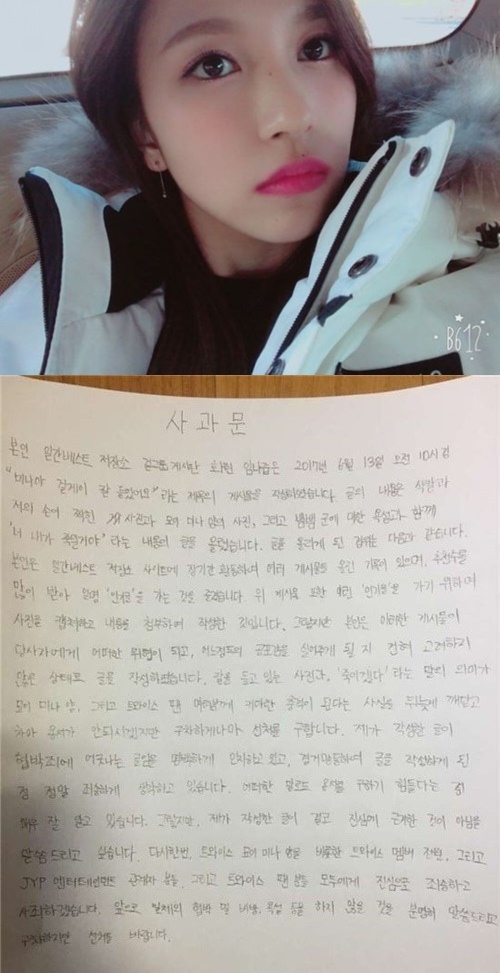 B612
사과문
본인 일간베스트 저장소 회원 임나즙은 2017년 6월 13일 오전 10시경
"미나야 잘게이 칼 들었어요" 라는 제목의 게시물을 작성하였습니다. 글의 내용은 식칼과
저의 손이 찍힌 사진과 묘이 미나 양의 사진, 그리고 뱀뱀 군에 대한 욕설과 함께
'너 내가 죽일거야' 라는 내용의 글을 올렸습니다. 글을 올리게 된 경위는 다음과 같습니다.
본인은 일간베스트 저장소 사이트에 장기간 활동하며 여러 게시물을 올린 기록이 있으며, 추천수를
많이 받아 일명 '인기글'을 가는 것을 즐겼습니다. 위 게시물 또한 '인기글'을 가기 위하여
사진을 캡처하고 내용을 첨부하여 작성한 것입니다. 그렇지만 본인은 이러한 게시물이
당사자에게 어떠한 위협이 되고, 어느정도의 공포감을 심어주게 될 지 전혀 고려하지
않은 상태로 글을 작성하였습니다. 칼을 들고 있는 사진과, '죽이겠다' 라는 말의 의미가
묘이 미나 양, 그리고 트와이스 팬 여러분께 커다란 충격이 된다는 사실을 뒤늦게 깨닫고
차마 용서가 안되시겠지만 구차하게나마 선처를 구합니다. 제가 작성한 글이
협박죄에 어긋나는 글임을 명백하게 인지하고 있고, 글을 작성하게 된
점 정말 죄송하게 생각하고 있습니다. 어떠한 말로도 용서를 구하기 힘들다는 점
매우 잘 알고 있습니다. 그렇지만, 제가 작성한 글이 결코 진심에 근거한 것이 아님을
말씀드리고 싶습니다. 다시한번, 트와이스 묘이 미나 양을 비롯한 트와이스 멤버 전원, 그리고
JYP 엔터테인먼트 관계자 분들, 그리고 트와이스 팬 분들 모두에게 진심으로 죄송하고
사죄하겠습니다. 앞으로 일체의 협박 및 비방, 욕설 등을 하지 않을 것을 분명히 말씀드리고
구차하지만 선처를 바랍니다.